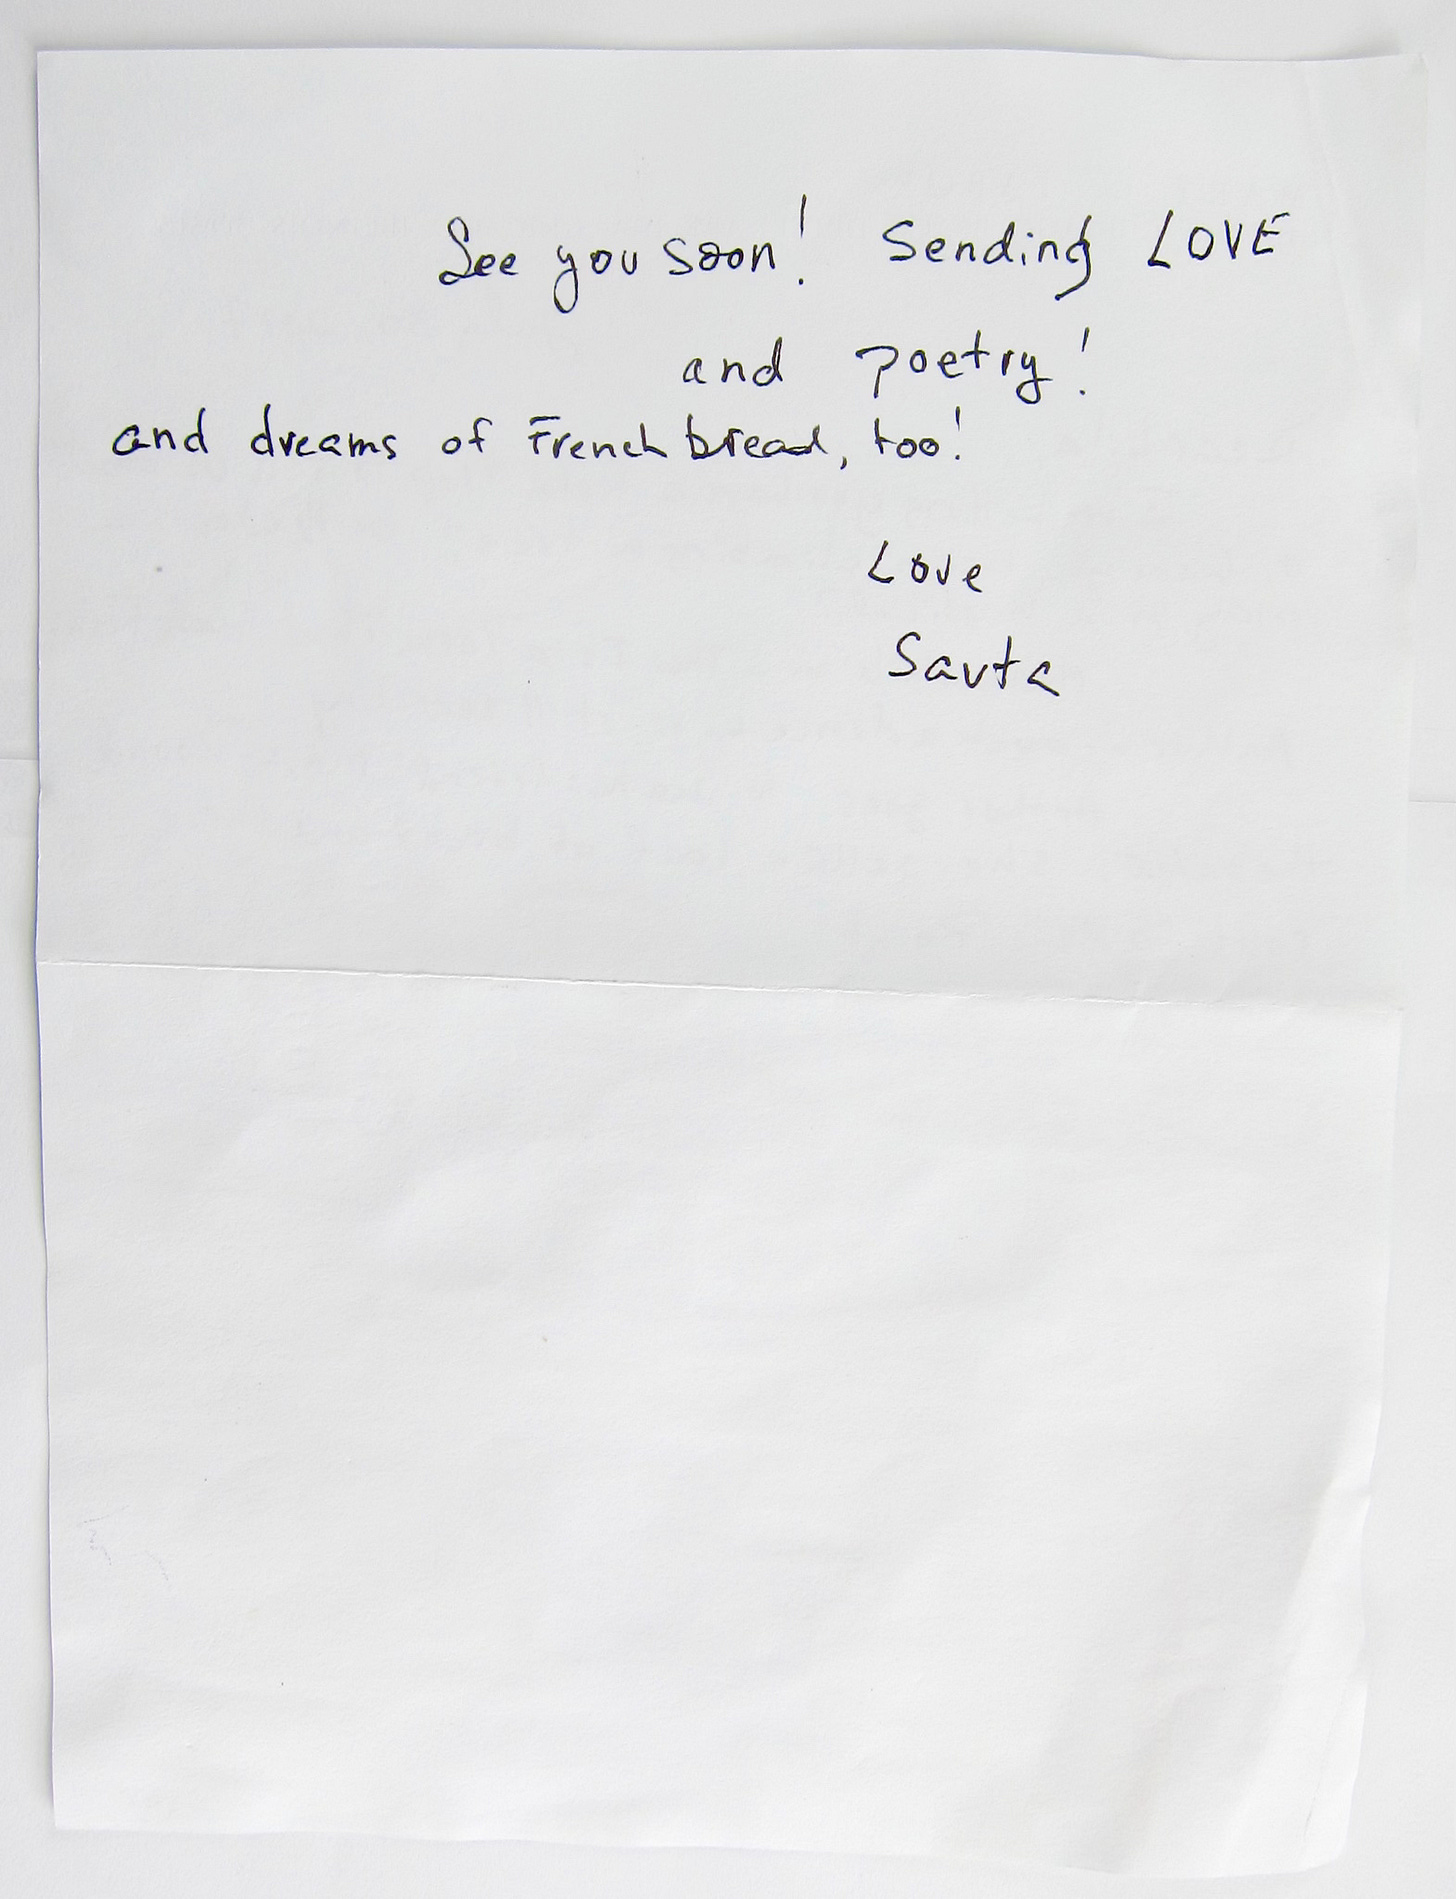 See you soon! Sending LOVE
and poetry!
and dreams of French bread, too!
Love
Savta